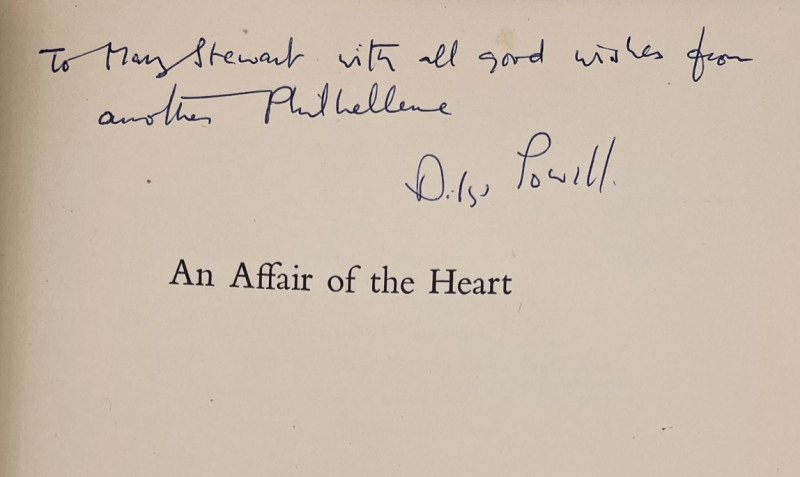 To Mary Stewart with all good wishes from
another Philhellene
Dilys Powell.
An Affair of the Heart